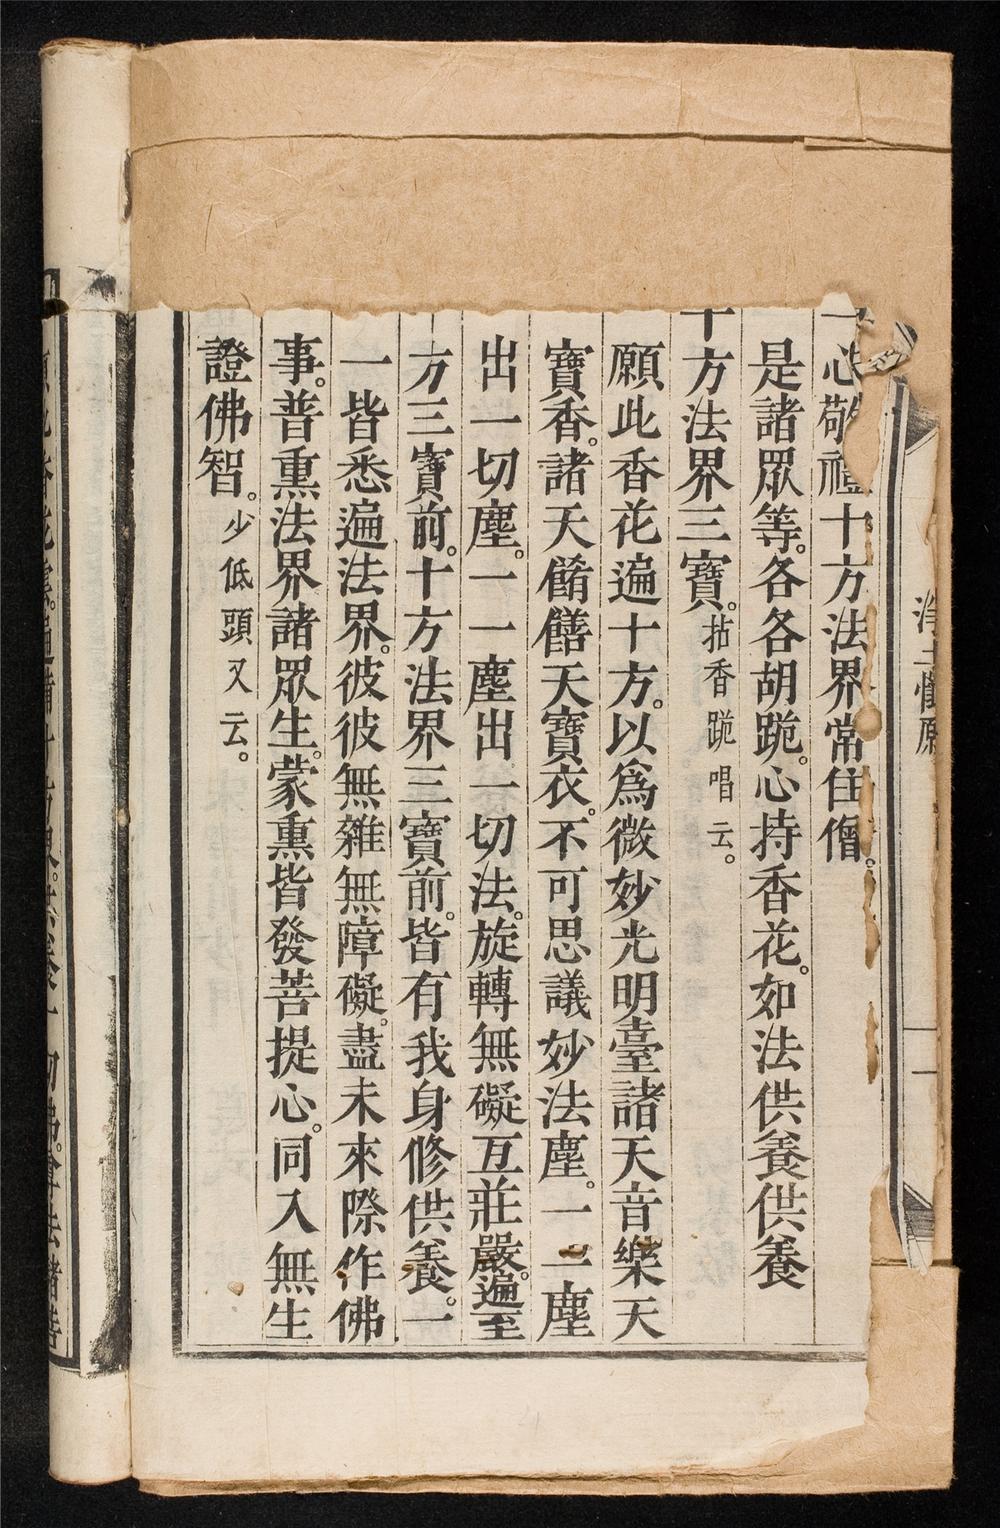 一心敬禮十方法界常住僧。
是諸眾等。各各胡跪。心持香花。如法供養供養
十方法界三寶。拈香跪唱云。
願此香花遍十方。以為微妙光明臺諸天音樂天
寶香。諸天餚饍天寶衣。不可思議妙法塵。一一塵
出一切塵。一一塵出一切法。旋轉無礙互莊嚴。遍至
十方三寶前。十方法界三寶前。皆有我身修供養。一
一皆悉遍法界。彼彼無雜無障礙。盡未來際作佛
事。普熏法界諸眾生。蒙熏皆發菩提心。同入無生
證佛智。少低頭又云。